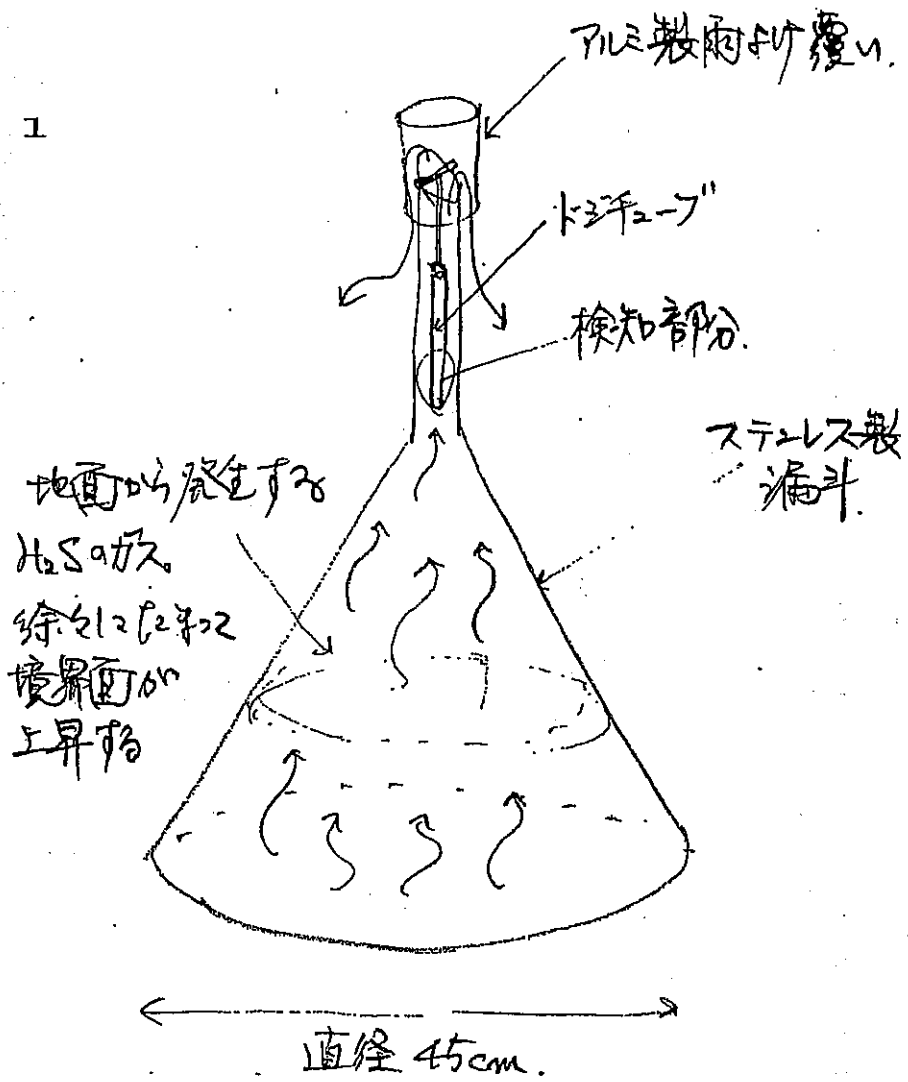 アルミ製雨よけ覆い.
1
ドジチューブ
検知部分.
ステンレス製
漏斗.
地面から発生する
H₂Sのガス。
徐々にたまって
境界面が
上昇する
直径 45cm.